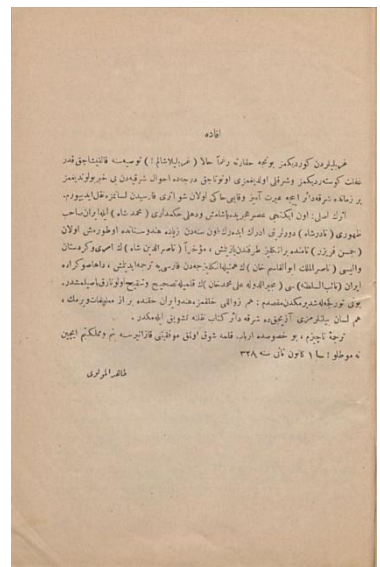 افاده
غربليلردن كوردیكمز بونجه حقارته رغماً حالا (غربلیلاشالم!) توصیه‌سنه قالقیشاجق قدر
غفلت كوسترديكمز وشرقلی اولدیغمزی اونوتاجق درجه‌ده احوال شرقیه‌دن بی خبر بولوندیغمز
بر زمانده شرقه دائر ایچه عبرت آمیز وقایعی حاكی اولان شو اثری فارسیدن لسانمزه نقل ایدییوردم.
اثرك اصلی: اون ایكنجی عصر هجریده یاشامش ودهلی حكمداری (محمد شاه) ایله ایران صاحب
ظهوری (نادرشاه) دورلرینی ادراك ایده‌رك اون سنه‌دن زیاده هندوستانده اوطورمش اولان
(جمس فریزر) نامنده بر انكلیز طرفندن یازیلمش، مؤخراً (ناصرالدین شاه) ك امری وكردستان
والیسی (ناصر الملك ابوالقاسم خان) ك همتیله انكلیزجه‌دن فارسی‌یه ترجمه ایدیلمش، داها صوكراده
ایران (نائب السلطنه) سی (مجیر الدوله علی محمد خان) ك قلمیله تصحیح وتنقیح اولونارق باصیلمشدر.
بونی توركجه‌لشدیرمكدن مقصدم: هم زواللی خلقمزه هند وایران حقنده بر از معلومات ویرمك،
هم لسان بیلنلرمزی آز بچق ده شرقه دائر كتاب نقلنه تشویق ایله‌مكدر.
ترجمهٔ ناچیزم، بو خصوصده ارباب قلمه شوق اولمق موفقیتنی قازانیرسه بنم ومملكتم ایچین
نه موطلو! كانون ثانی سنه ٣٢٨
طاهر المولوی